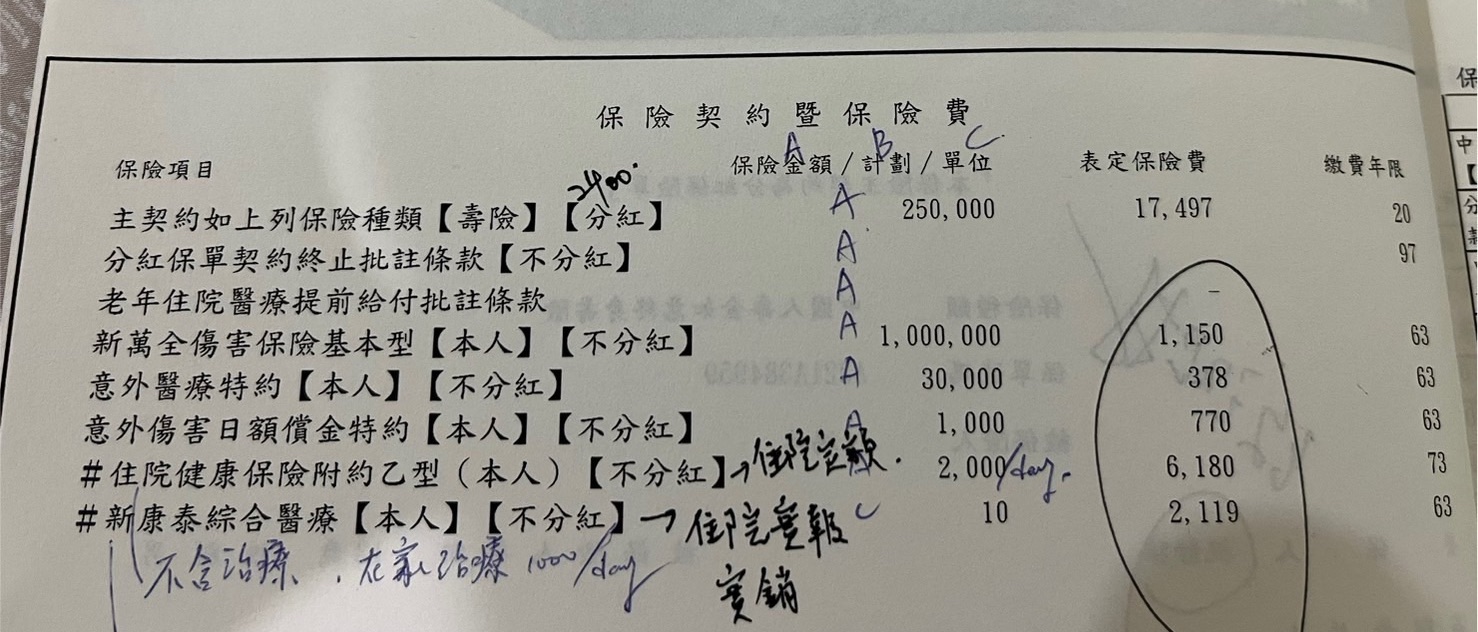 保險契約暨保險費
A B C
保險項目 保險金額/計劃/單位 表定保險費 繳費年限
2400.
主契約如上列保險種類【壽險】【分紅】 A 250,000 17,497 20
分紅保單契約終止批註條款【不分紅】 A 97
老年住院醫療提前給付批註條款 A –
新萬全傷害保險基本型【本人】【不分紅】 A 1,000,000 1,150 63
意外醫療特約【本人】【不分紅】 A 30,000 378 63
意外傷害日額償金特約【本人】【不分紅】 A 1,000 770 63
#住院健康保險附約乙型(本人)【不分紅】→住院定額. 2,000/day. 6,180 73
#新康泰綜合醫療【本人】【不分紅】→住院實報 C 10 2,119 63
實銷
不含治療、在家治療 1000/day
保
中
【
分